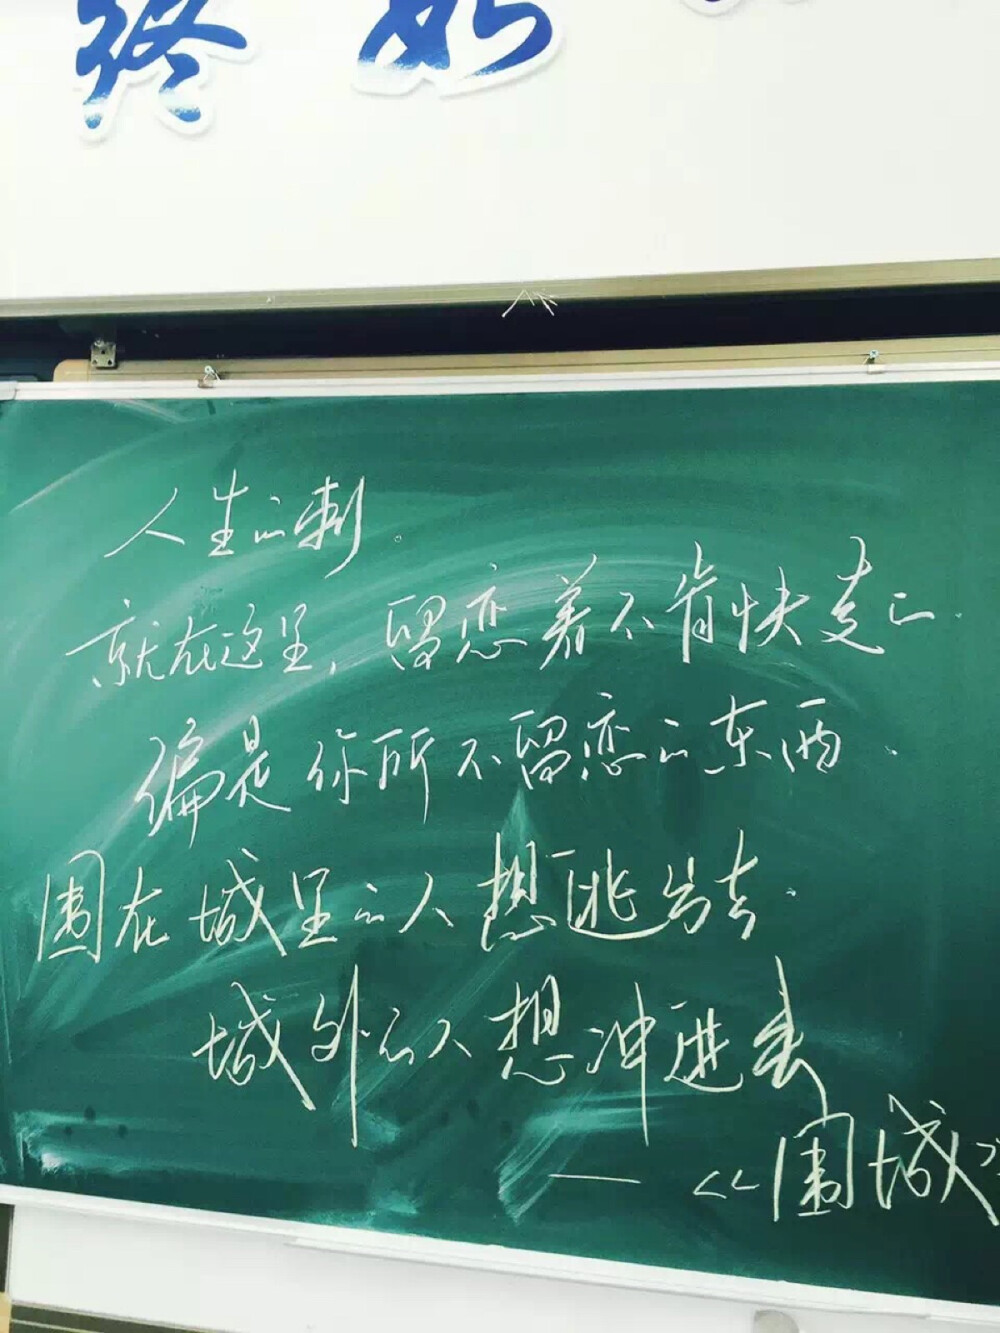 终如
人生的刺。
就在这里，留恋着不肯快走的.
偏是你所不留恋的东西.
围在城里的人想逃出去.
城外的人想冲进去
——《围城》